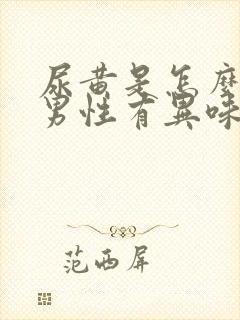 尿黄是怎么
男性有异味
范西屏